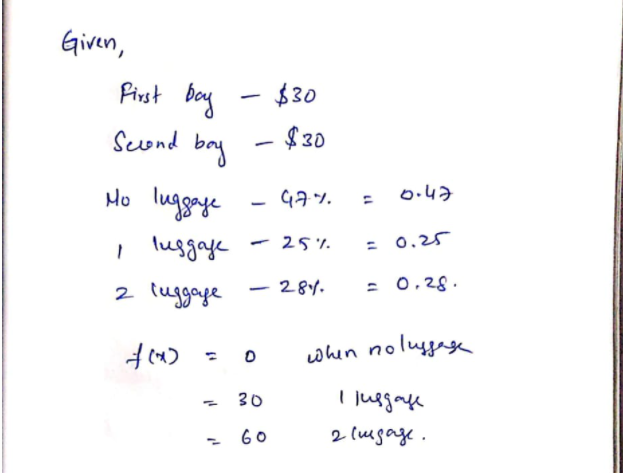 Given,
First bag - $30
Second bag - $30
No luggage - 47% = 0.47
1 luggage - 25% = 0.25
2 luggage - 28% = 0.28.
f(x) = 0 when no luggage
= 30 1 luggage
= 60 2 luggage.